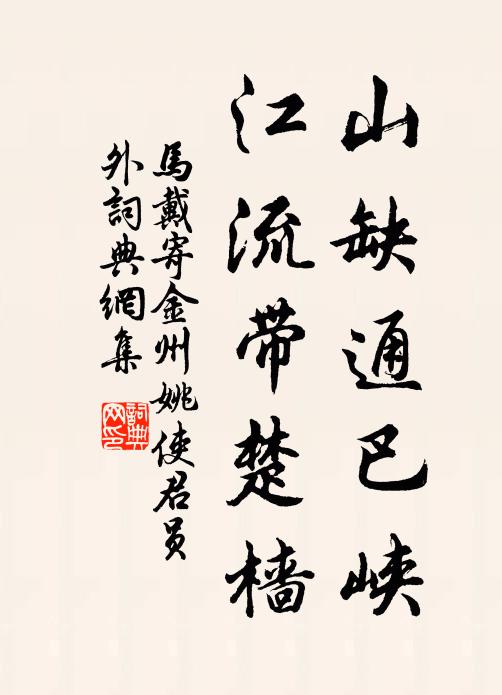 山缺通巴峡
江流带楚樯
馬戴寄金州姚使君员
外詞典網集
詞典
网印